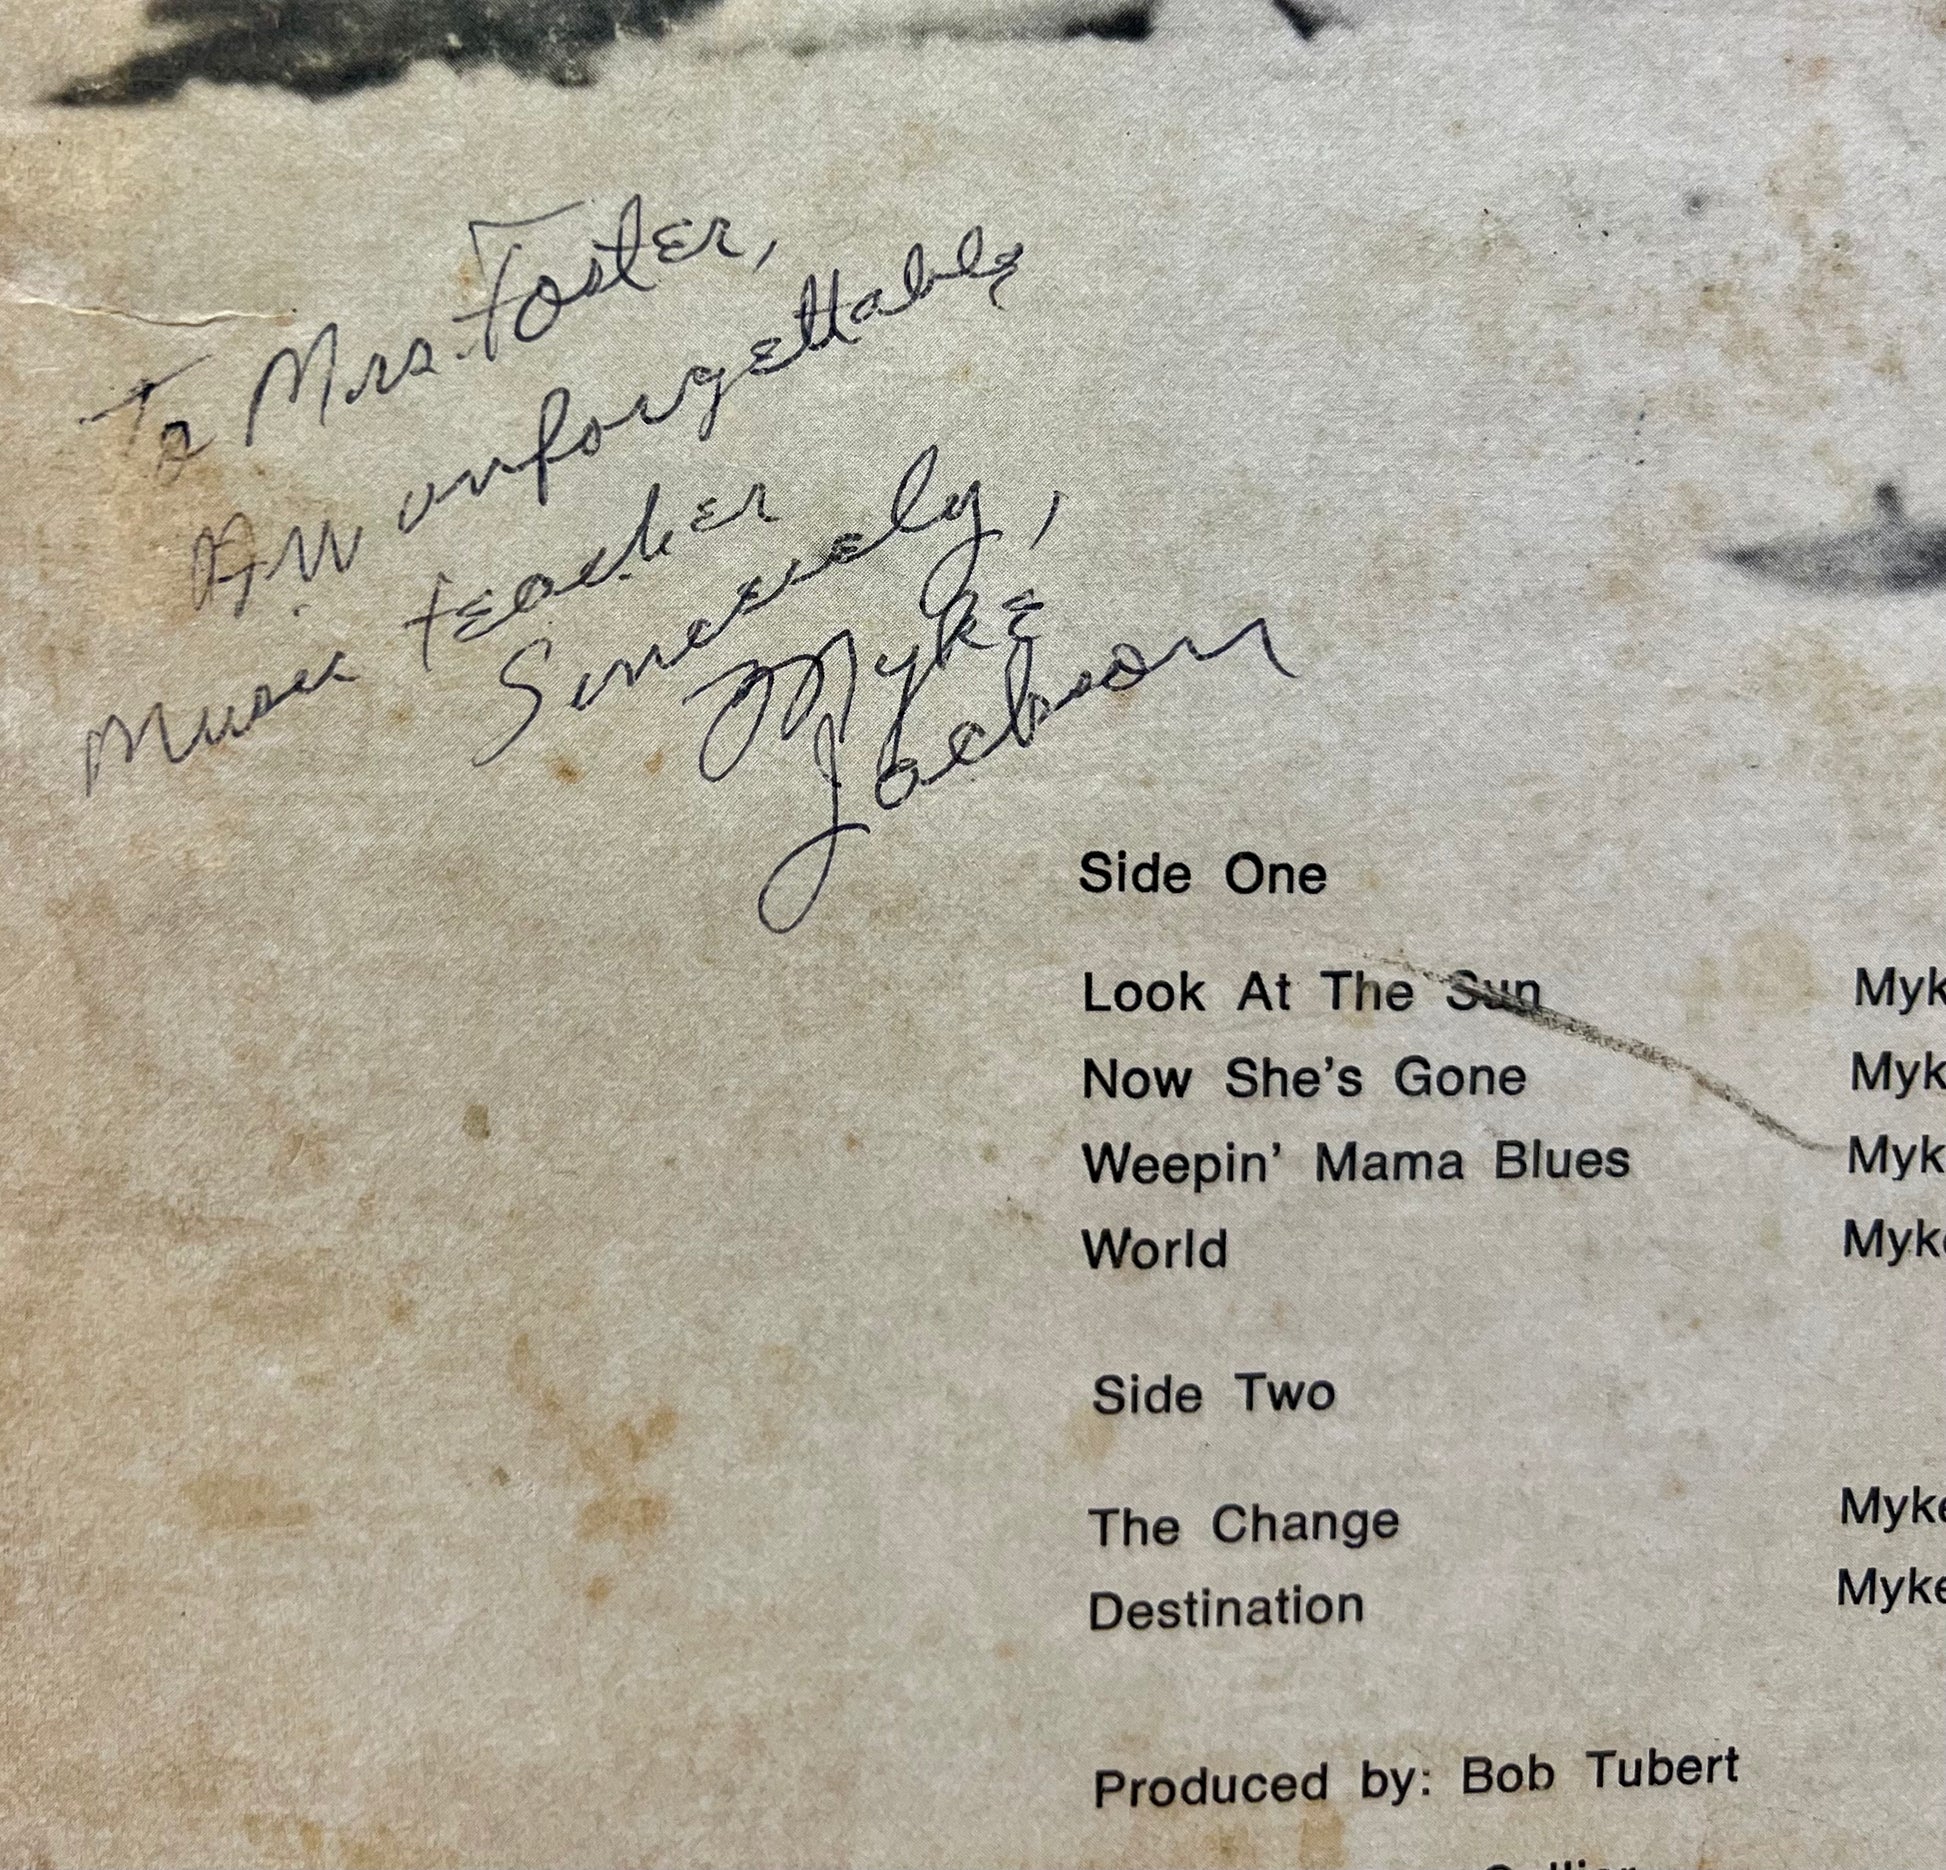 To Mrs. Foster,
AN unforgettable
Music teacher
Sincerely,
Myke
Jackson
Side One
Look At The Sun Myk
Now She's Gone Myk
Weepin' Mama Blues Myk
World Myke
Side Two
The Change Myke
Destination Myke
Produced by: Bob Tubert